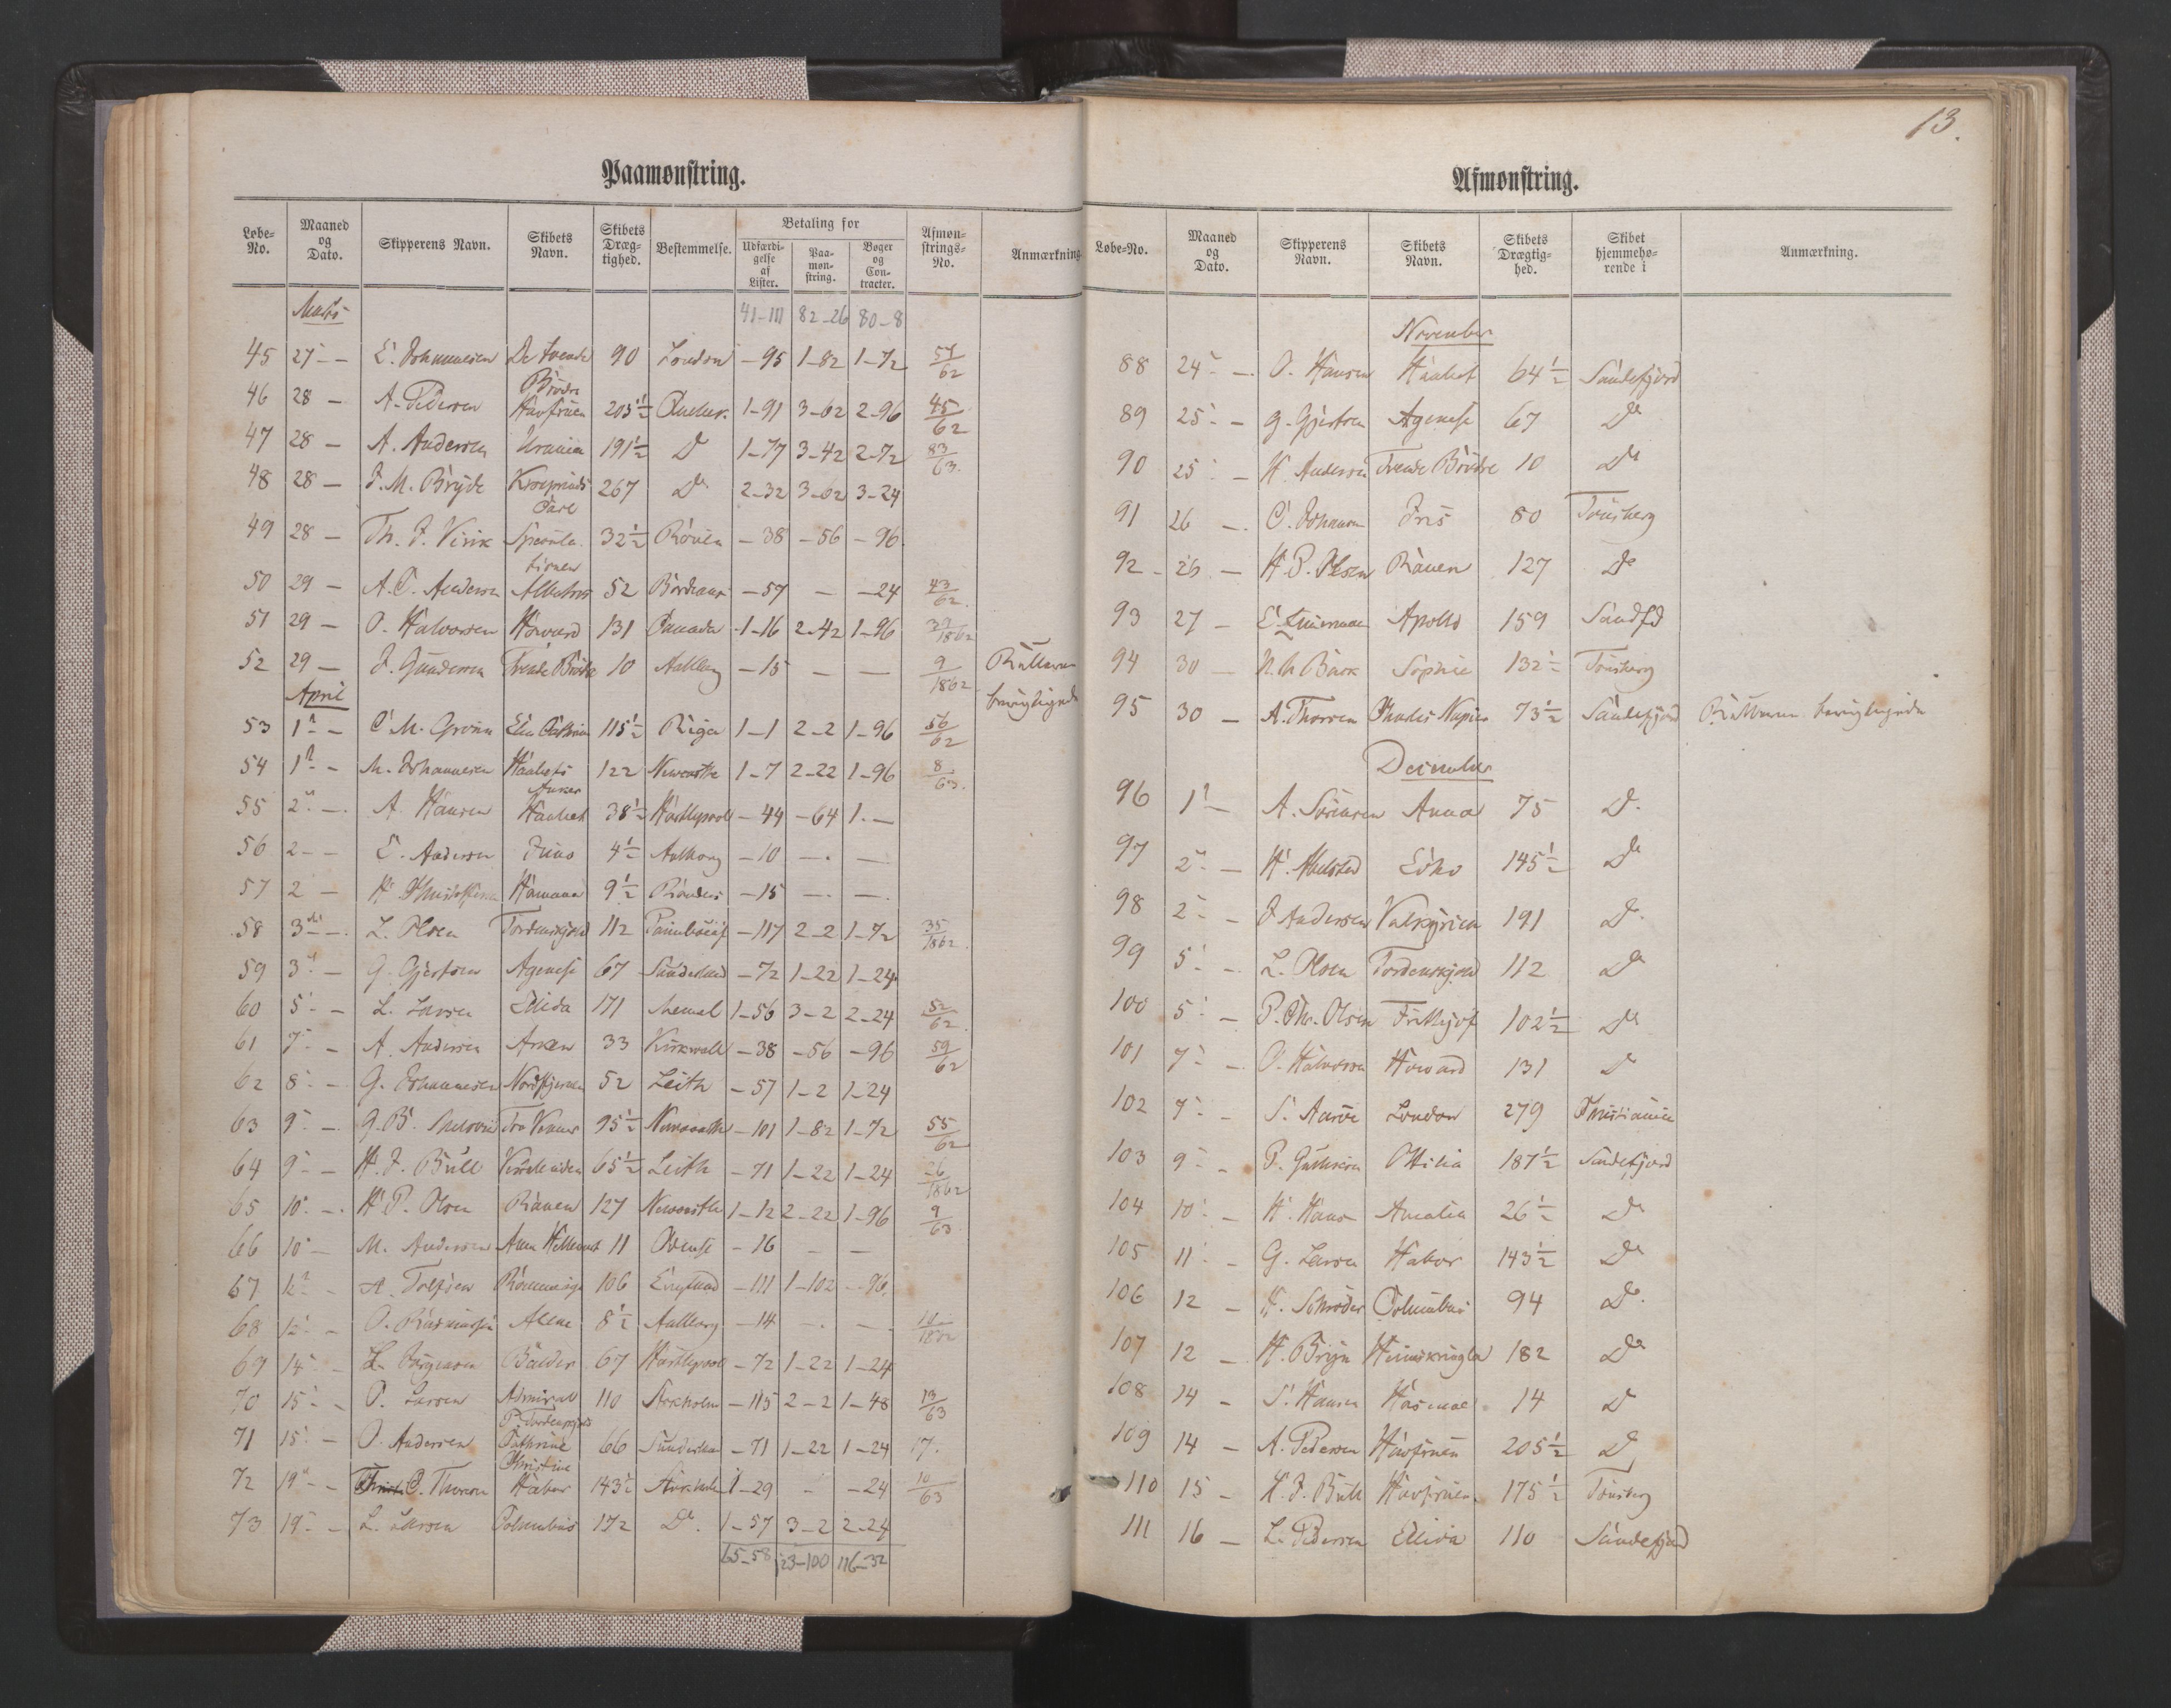 13.
Paamønstring.
Løbe-No. Maaned og Dato. Skipperens Navn. Skibets Navn. Skibets Dræg-tighed. Bestemmelse. Betaling for Udfærdi-gelse af Lister. Paa-møn-string. Bøger og Con-tracter. Afmøn-strings-No. Anmærkning
Marts 41-111 82-26 80-8
45 27 - E. Johannesen De tvende Brødre 90 London -95 1-82 1-72 57/62
46 28 - A. Pedersen Havfruen 205½ Quebec 1-91 3-62 2-96 45/62
47 28 - A. Andersen Urania 191½ Do 1-77 3-42 2-72 83/63.
48 28 - J. M. Bryde Kronprinds Carl 267 Do 2-32 3-62 3-24
49 28 - Th. J. Virik Specula-tionen 32½ Rouen -38 -56 -96.
50 29 - A. C. Andersen Albatros 52 Bordeaux -57 - -24 43/62.
51 29 - O. Halvorsen Howard 131 Canada 1-16 2-42 1-96 /1862
52 29 - J. Gundersen Tvende Brødre 10 Aalborg -15 - - 9/1862 Rullerne
April
53 1 - C. M. 115½ Riga 1-1 2-2 1-96 56/62
54 1 - M. Johannesen Haabets Anker 122 Newcastle 1-7 2-22 1-96 8/63.
55 2 - A. Hansen Haabet 38½ Hartlepool -44 -64 1.-
56 2 - E. Andersen Juno 4½ Aalborg -10 -. -
57 2 - H. 9½ Randers -15 -. -.
58 3 - L. Olsen Tordenskjold 112 -117 2-2 1-72 35/1862.
59 3 - G. Gjertsen Agenese 67 Sunderland -72 1-22 1-24
60 5 - L. Larsen Ellida 171 Memel 1-56 3-2 2-24 52/62.
61 7 - A. Andersen 33 Kirkwall -38 -56 -96 59/62
62 8 - G. Johannesen Nordstjernen 52 Leith -57 1-2 1-24
63 9 - G. B. Tro Venner 95½ Newcastle -101 1-82 1-72 55/62
64 9 - H. J. Bull 65½ Leith -71 1-22 1-24 26/1862
65 10 - H. P. Olsen Ranen 127 Newcastle 1-12 2-22 1-96 9/63
66 10 - M. Andersen Anna 11 Odense -16 - -
67 12 - A. 106 England -111 1-102 -96.
68 12 - O. 8½ Aalborg -14 -. -. /1862
69 14 - L. Jørgensen Balder 67 Hartlepool -72 1-22 1-24
70 15 - O. Larsen Admiral P. Tordenskjold 110 Stockholm -115 2-2 1-48 13/63
71 15 - O. Andersen Cathrine Christine 66 Sunderland -71 1-22 1-24 17.
72 19 - C. Thorsen Habor 143½ Stockholm 1-29 - -24 10/63
73 19 - L. Larsen Columbus 172 Do. 1-57 3-2 2-24
65-58 123-100 116-32
Afmønstring.
Løbe-No. Maaned og Dato. Skipperens Navn. Skibets Navn. Skibets Drægtig-hed. Skibet hjemmehø-rende i Anmærkning.
November
88 24 - O. Hansen Haabet 64½ Sandefjord
89 25 - G. Gjertsen Agenese 67 Do
90 25 - H. Andersen Tvende Brødre 10 Do
91 26 - C. Johansen Iris 80 Tønsberg
92 26 - H. P. Olsen Ranen 127 Do
93 27 - E. Apollo 159 Sandfd
94 30 - Sophie 132½ Tønsberg
95 30 - A. Thorsen Charles Napier 73½ Sandefjord Rullerne
December
96 1 - A. Sørensen Anna 75 Do.
97 2 - H. Echo 145½ Do
98 2 - J. Andersen Valkyrien 191 Do.
99 5 - L. Olsen Tordenskjold 112 Do
100 5 - P. Chr. Olsen Frithjof 102½ Do
101 7 - O. Halvorsen Howard 131 Do
102 7 - S. London 279 Christiania
103 9 - P. Ottilia 187½ Sandefjord
104 10 - H. Hansen Amalia 26½ Do
105 11 - G. Larsen Habor 143½ Do
106 12 - H. Schrøder Columbus 94 Do.
107 12 - H. Heimskringla 182 Do
108 14 - S. Hansen 14 Do
109 14 - A. Pedersen Havfruen 205½ Do
110 15 - H. J. Bull Havfruen. 175½ Tønsberg
111 16 - L. Pedersen Ellida 110 Sandefjord